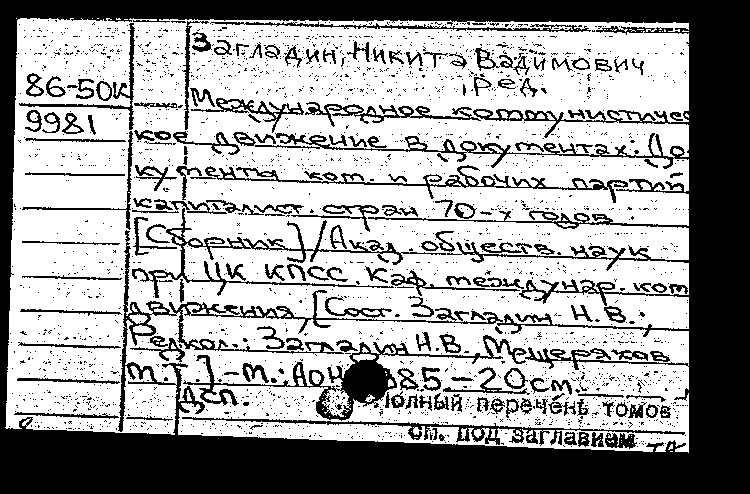 Загладин, Никита Вадимович
, ред.
86-50К
Международное коммунистичес
9981
кое движение в документах: До-
кументы ком. и рабочих партий
капиталист. стран 70-х годов :
[Сборник] / Акад. обществ. наук
при ЦК КПСС. Каф. междунар. ком
движения; [Сост. Загладин Н.В.;
Редкол.: Загладин Н.В., Мещеряков
М.Т.] - М.: АОН 85. - 20 см.
ДСП.
Полный перечень томов
см. под заглавием